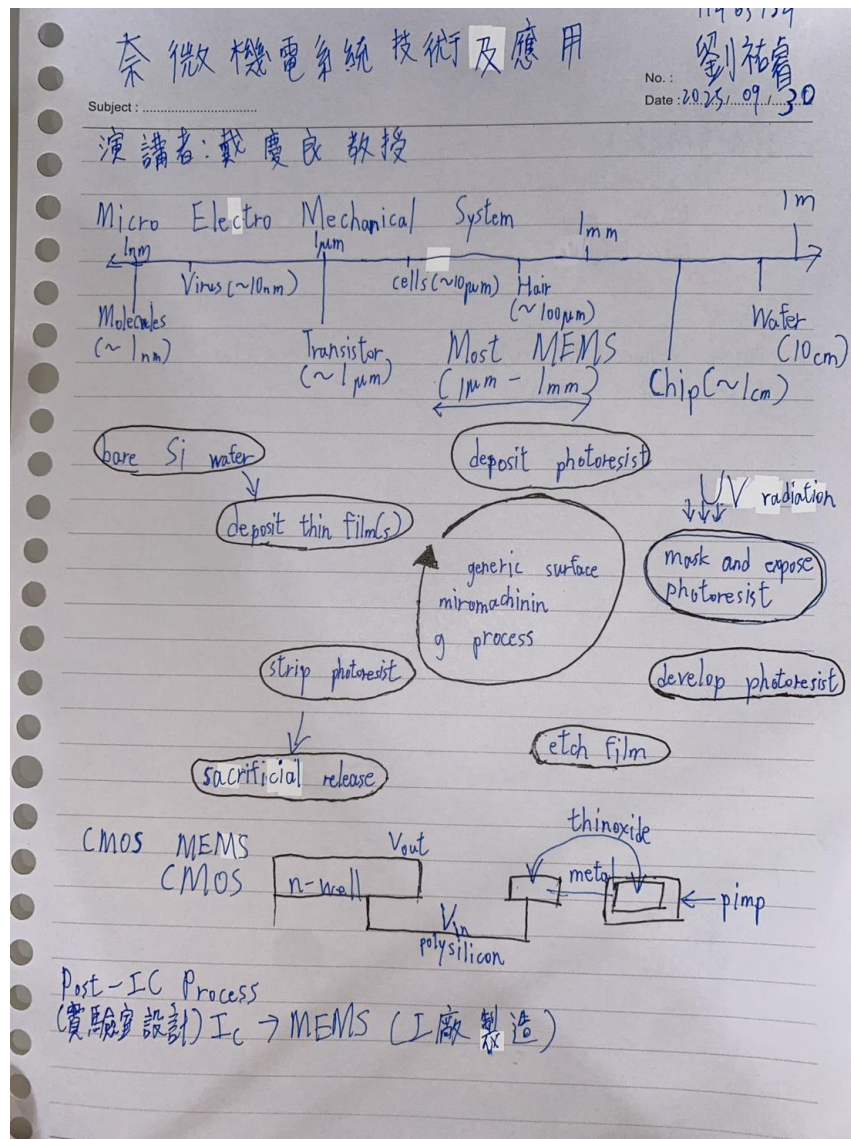 奈微機電系統技術及應用
劉祐睿
No. :
Subject :
Date : 2025/09/30
演講者:戴慶良教授
Micro Electro Mechanical System
1nm 1μm 1mm 1m
Virus(~10nm) cells(~10μm) Hair (~100μm)
Molecules (~1nm) Transistor (~1μm) Most MEMS (1μm - 1mm) Chip(~1cm) Wafer (10cm)
bare Si wafer
deposit thin film(s)
deposit photoresist
UV radiation
mask and expose
photoresist
generic surface
miromachinin
g process
develop photoresist
strip photoresist
etch film
sacrificial release
CMOS MEMS
CMOS
n-well
Vout
Vin
polysilicon
thinoxide
metal
pimp
Post-IC Process
(實驗室設計) Ic → MEMS (工廠製造)